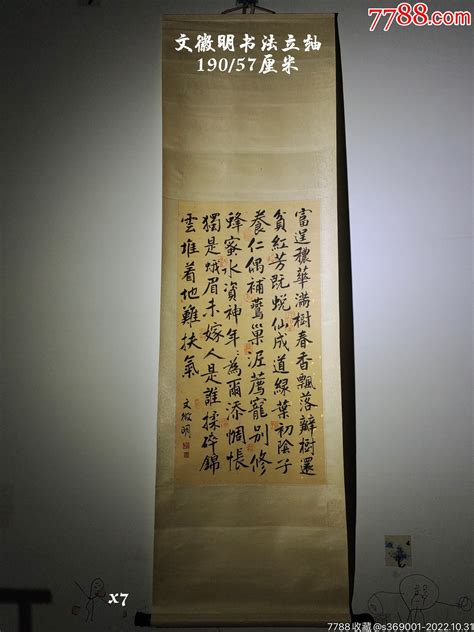 7788.com
文徵明书法立轴
190/57厘米
富逞穠華滿樹春香飄落瓣樹還
貧紅芳既蛻仙成道綠葉初陰子
養仁偶補鶯巢泥薦寵別修
蜂蜜水資神年為爾添惆悵
獨是蛾眉未嫁人是誰揉碎錦
雲堆着地難扶氣
文徵明
x7
7788收藏@s369001-2022.10.31